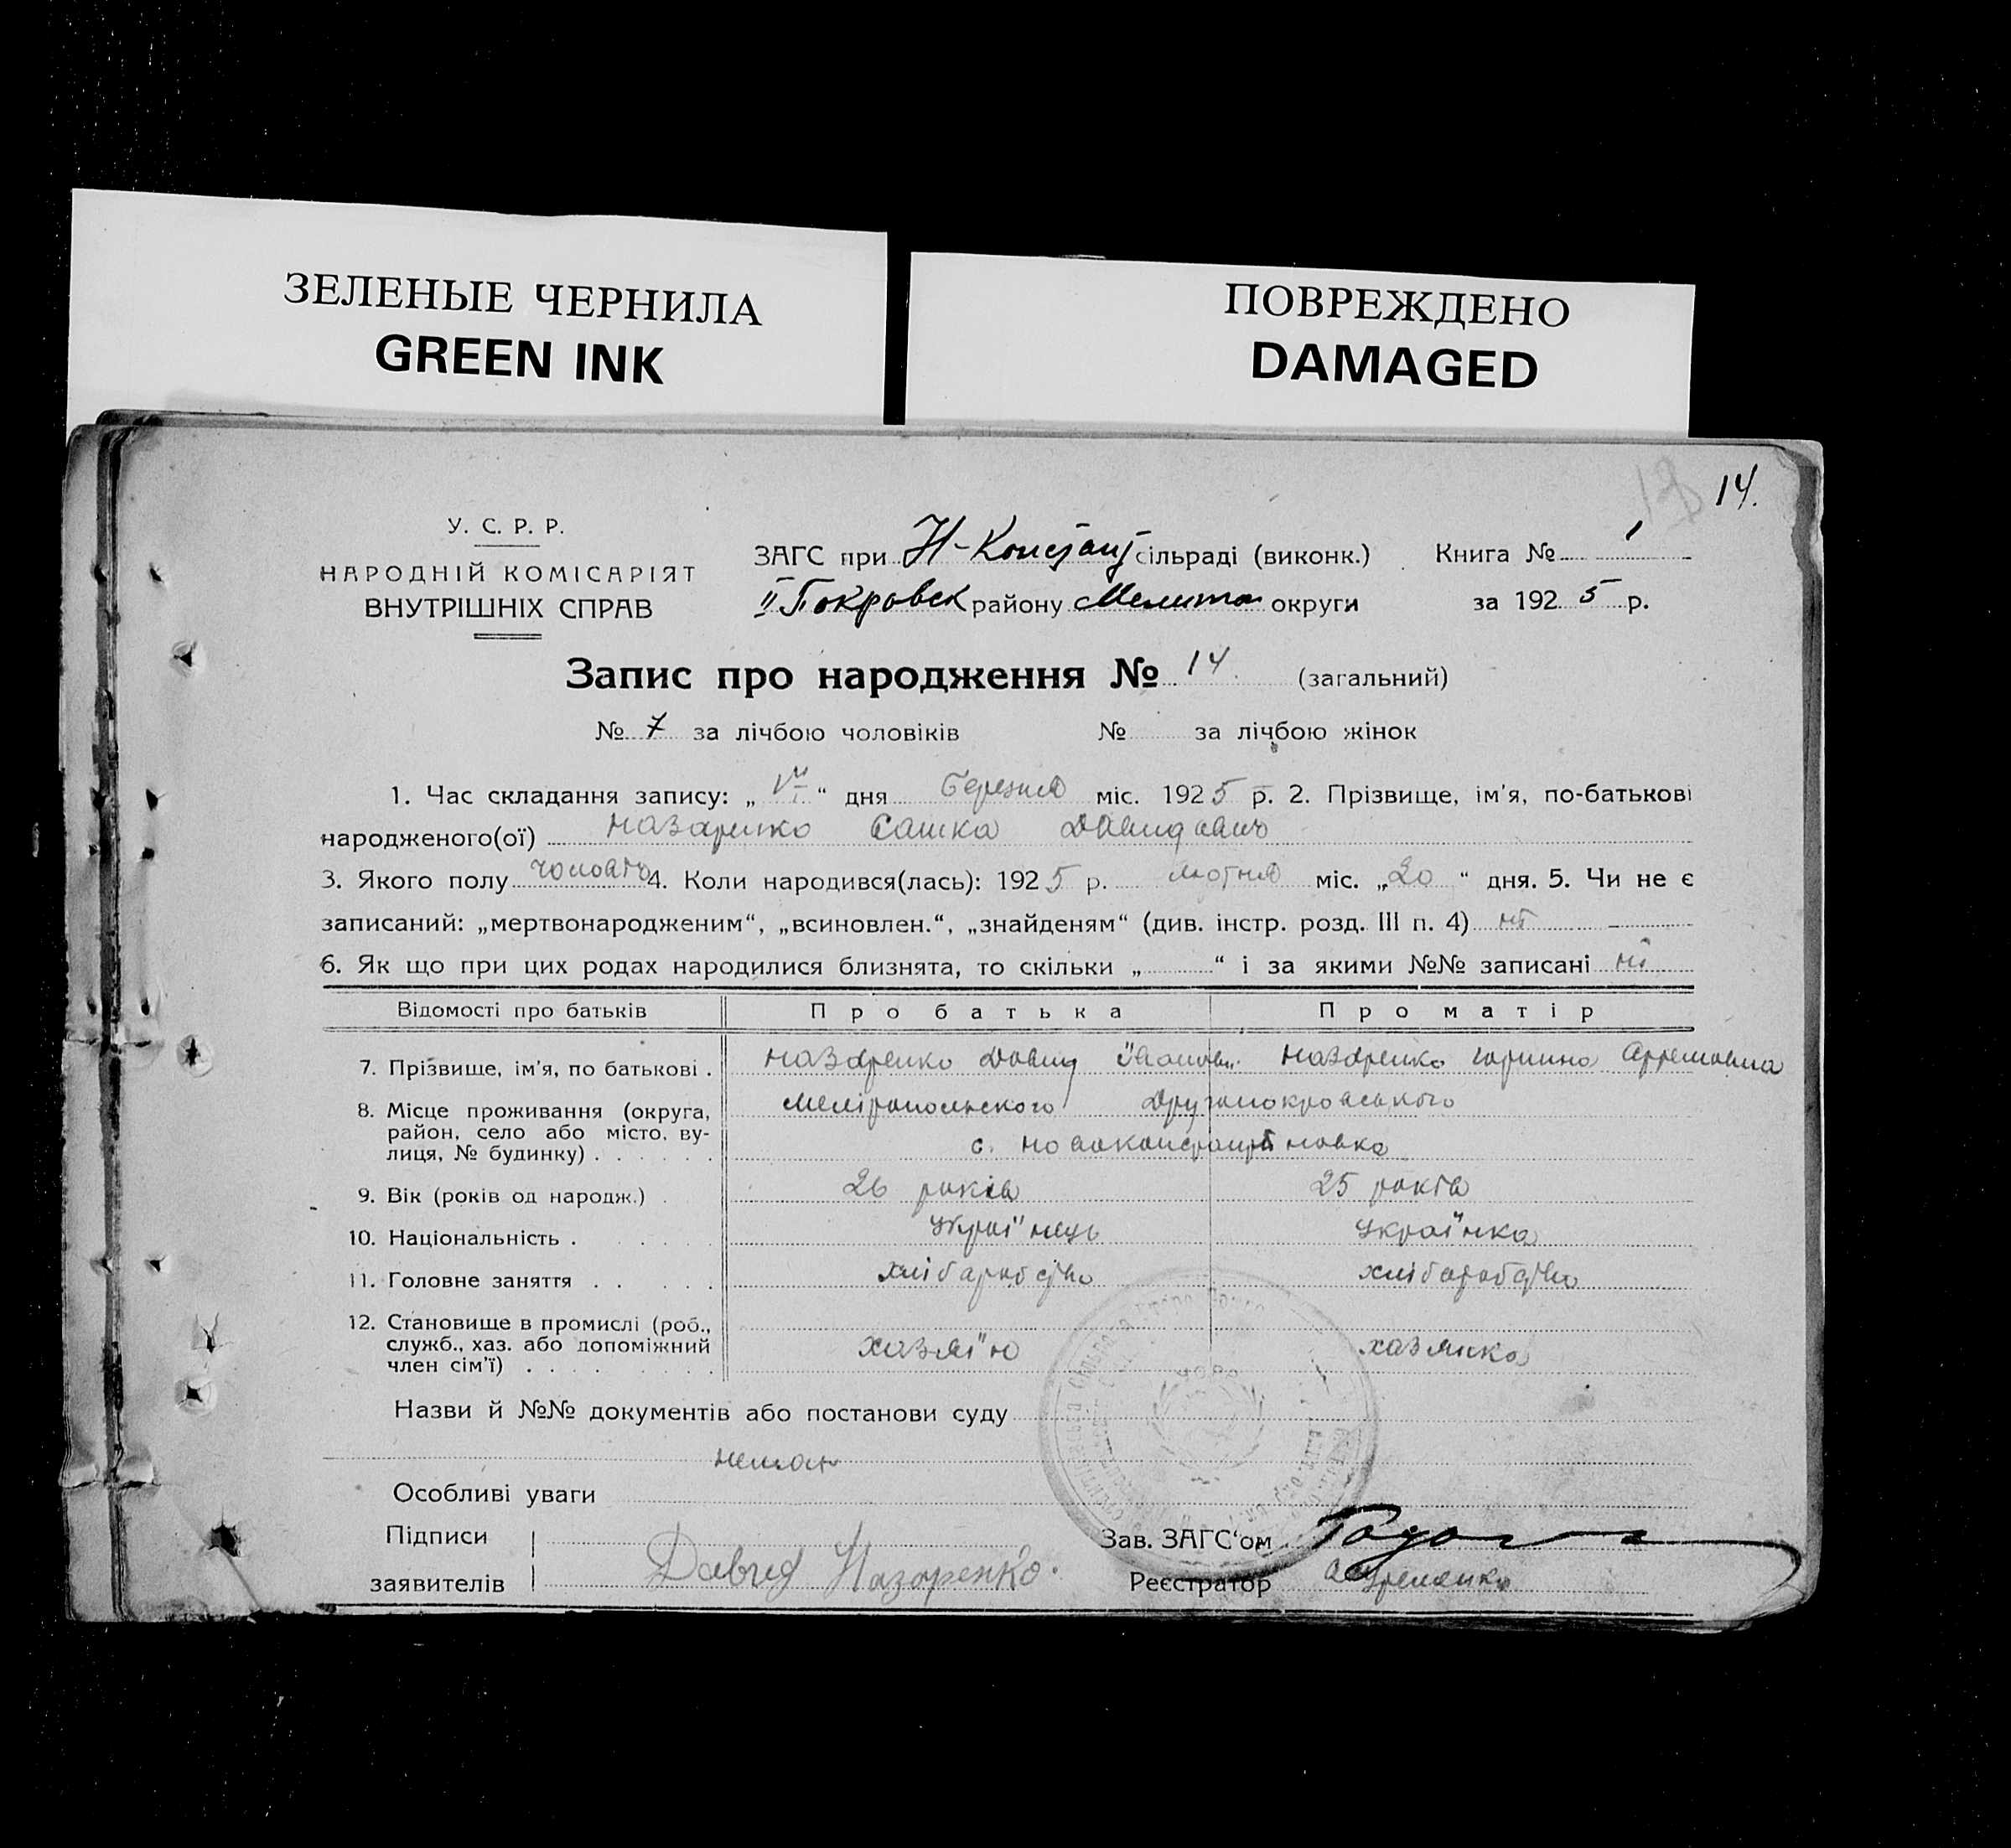 ЗЕЛЕНЫЕ ЧЕРНИЛА
GREEN INK
ПОВРЕЖДЕНО
DAMAGED
14.
У. С. Р. Р.
НАРОДНІЙ КОМІСАРІЯТ
ВНУТРІШНІХ СПРАВ
ЗАГС при Н-Констант сільраді (виконк.) Книга № 1
II Покровск району Мелитоп округи за 1925 р.
Запис про народження № 14. (загальний)
№ 7 за лічбою чоловіків № за лічбою жінок
1. Час складання запису: „ “ дня березня міс. 1925 р. 2. Прізвище, ім'я, по-батькові
народженого(ої) Назаренко Сашка Давидович
3. Якого полу 4. Коли народився(лась): 1925 р. лютня міс. „20“ дня. 5. Чи не є
записаний: „мертвонародженим“, „всиновлен.“, „знайденям“ (див. інстр. розд. III п. 4) ні
6. Як що при цих родах народилися близнята, то скільки „ “ і за якими №№ записані ні
Відомості про батьків Про батька Про матір
7. Прізвище, ім'я, по батькові . Назаренко Давид Назаренко
8. Місце проживання (округа, район, село або місто, вулиця, № будинку) . . . . . . Мелітопольского Другопокровського
с. Новоконстантіновка
9. Вік (років од народж.) . 26 років 25 років
10. Національність . Украї'нець Украї'нка
11. Головне заняття . . хліборобство хліборобство
12. Становище в промислі (роб., служб., хаз. або допоміжний член сім'ї) . . . . хазяйка
Назви й №№ документів або постанови суду
немає
Особливі уваги
Підписи
заявителів Давид Назаренко.
Зав. ЗАГС‘ом
Реєстратор